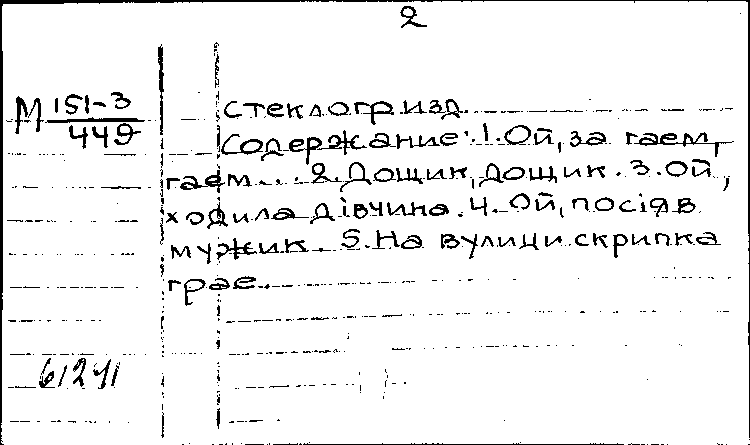 2
М 151-3
449
стеклогр.изд.
Содержание: 1. Ой, за гаем,
гаем... 2. Дощик, дощик. 3. Ой,
ходила дівчина. 4. Ой, посіяв
мужик. 5. На вулици скрипка
грае.